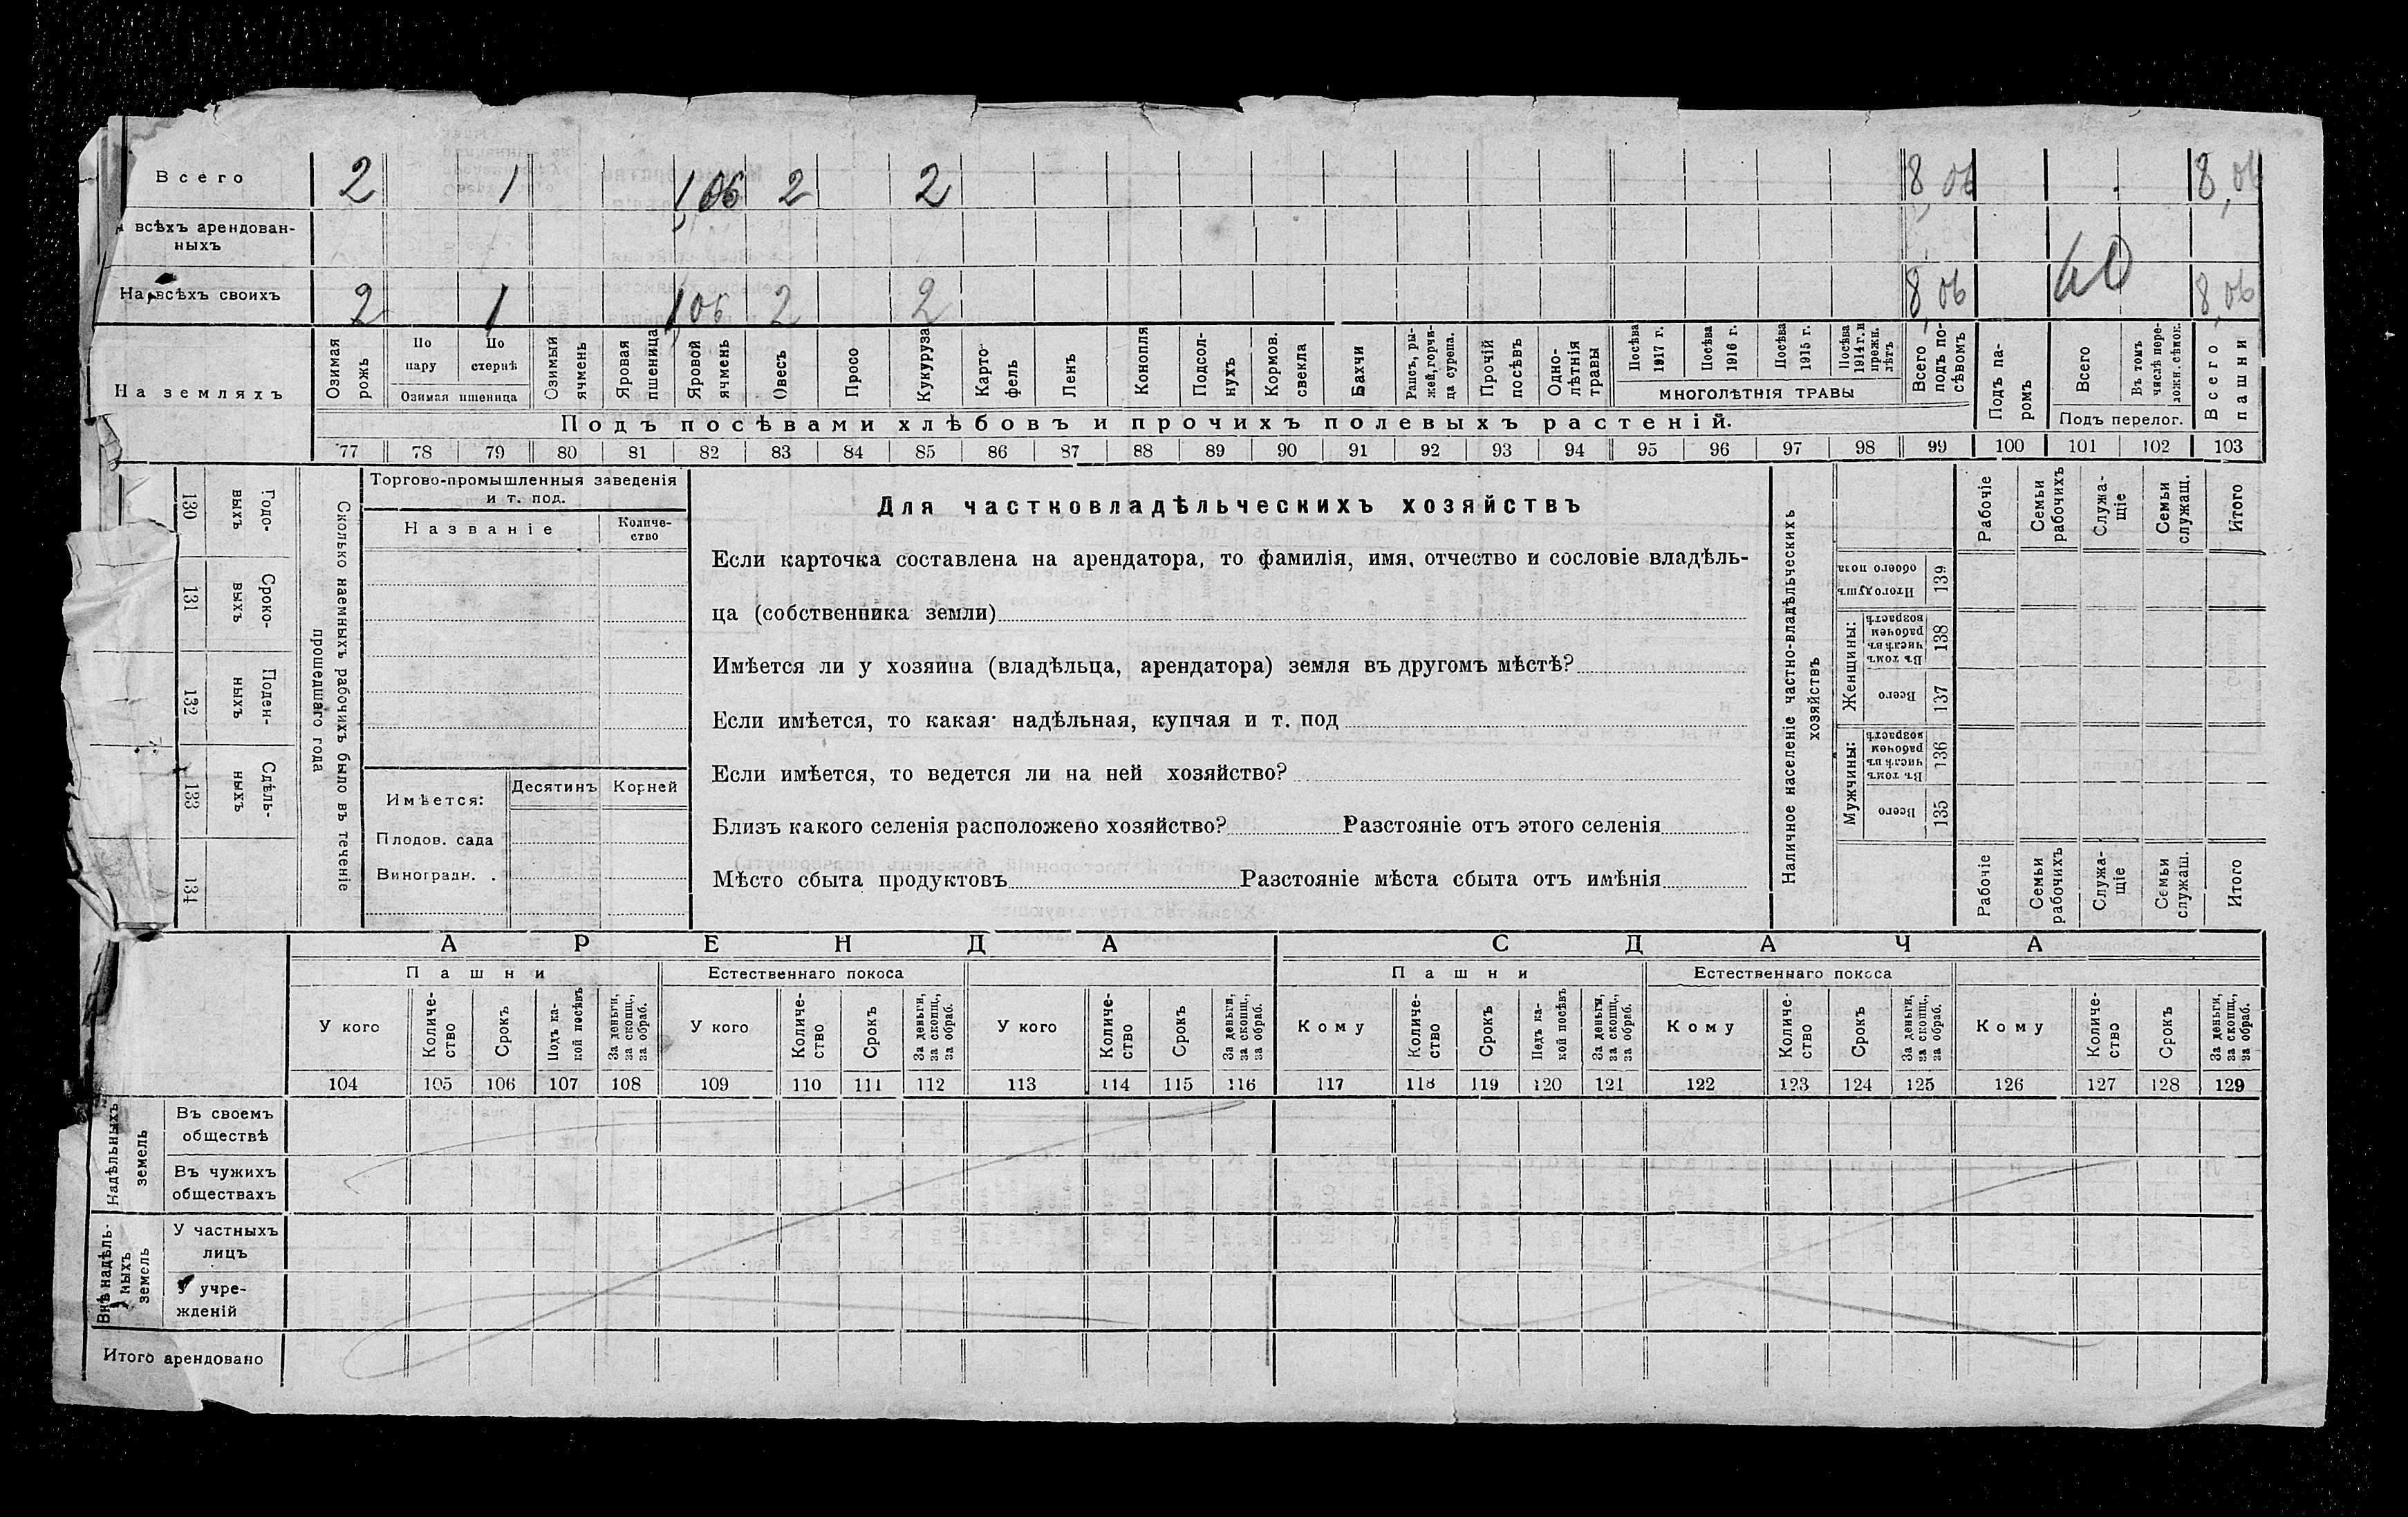 Всего 2 1 1,06 2 2 8,06 8,06
всѣхъ арендован-
ныхъ
На всѣхъ своихъ 2 1 1,06 2 2 8,06 8,06
На земляхъ
Озимая рожь
По пару
По стернѣ
Озимая пшеница
Озимый ячмень
Яровая пшеница
Яровой ячмень
Овесъ
Просо
Кукуруза
Карто-
фель
Ленъ
Конопля
Подсол-
нухъ
Кормов.
свекла
Бахчи
Рапсъ, ры-
жей, горчи-
ца сурепа.
Прочій
посѣвъ
Одно-
лѣтнія
травы
Посѣва
1917 г.
Посѣва
1916 г.
Посѣва
1915 г.
Посѣва
1914 г. и
прежн.
лѣтъ
МНОГОЛѢТНІЯ ТРАВЫ
Всего
подъ по-
сѣвомъ
Подъ па-
ромъ
Всего
Въ томъ
числѣ пере-
ложн. сѣнок.
Подъ перелог.
Всего
пашни
Подъ посѣвами хлѣбовъ и прочихъ полевыхъ растеній.
77 78 79 80 81 82 83 84 85 86 87 88 89 90 91 92 93 94 95 96 97 98 99 100 101 102 103
130 Годо-
выхъ
131 Сроко-
выхъ
132 Поден-
ныхъ
133 Сдѣль-
ныхъ
134
Сколько наемныхъ рабочихъ было въ теченіе
прошедшаго года
Торгово-промышленныя заведенія
и т. под.
Названіе
Количе-
ство
Имѣется:
Десятинъ Корней
Плодов. сада
Виноградн. .
Для частковладѣльческихъ хозяйствъ
Если карточка составлена на арендатора, то фамилія, имя, отчество и сословіе владѣль-
ца (собственника земли)
Имѣется ли у хозяина (владѣльца, арендатора) земля въ другомъ мѣстѣ?
Если имѣется, то какая· надѣльная, купчая и т. под
Если имѣется, то ведется ли на ней хозяйство?
Близъ какого селенія расположено хозяйство? Разстояніе отъ этого селенія
Мѣсто сбыта продуктовъ Разстояніе мѣста сбыта отъ имѣнія
Наличное населеніе частно-владѣльческихъ
хозяйствъ
Рабочіе
Семьи
рабочихъ
Служа-
щіе
Семьи
служащ.
Итого
Итого душъ
обоего пола
139
Женщины:
Въ томъ
числѣ въ
рабочем
возрастѣ
138
Всего
137
Мужчины:
Въ томъ
числѣ въ
рабочем
возрастѣ
136
Всего
135
Рабочіе
Семьи
рабочихъ
Служа-
щіе
Семьи
служаш.
Итого
АРЕНДА СДАЧА
Пашни Естественнаго покоса Пашни Естественнаго покоса
У кого
Количе-
ство
Срокъ
Подъ ка-
кой посѣвъ
За деньги,
за скопщ.,
за обраб.
У кого
Количе-
ство
Срокъ
За деньги,
за скопщ.,
за обраб.
У кого
Количе-
ство
Срокъ
За деньги,
за скопщ.,
за обраб.
Кому
Количе-
ство
Срокъ
Подъ ка-
кой посѣвъ
За деньги,
за скопщ.,
за обраб.
Кому
Количе-
ство
Срокъ
За деньги,
за скопщ.,
за обраб.
Кому
Количе-
ство
Срокъ
За деньги,
за скопщ.,
за обраб.
104 105 106 107 108 109 110 111 112 113 114 115 116 117 118 119 120 121 122 123 124 125 126 127 128 129
Надѣльныхъ
земель
Въ своемъ
обществѣ
Въ чужихъ
обществахъ
Внѣ надѣль-
ныхъ
земель
У частныхъ
лицъ
У учре-
жденій
Итого арендовано